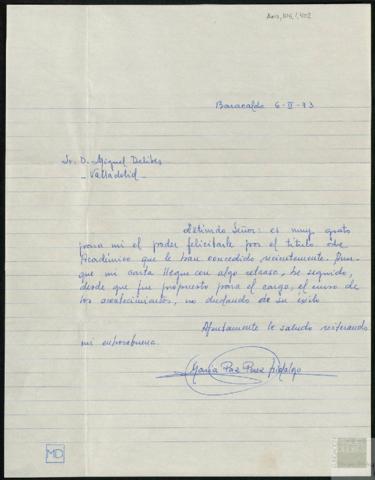 Baracaldo 6-II-73
Sr. D. Miguel Delibes
- Valladolid -
Estimado Señor: es muy grato
para mi el poder felicitarle por el título de
Académico que le han concedido recientemente. Aun-
que mi carta llegue con algo retraso, he seguido,
desde que fue propuesto para el cargo, el curso de
los acontecimientos, no dudando de su éxito
Atentamente le saluda reiterando
mi enhorabuena.
María Paz Perez Hidalgo
MD